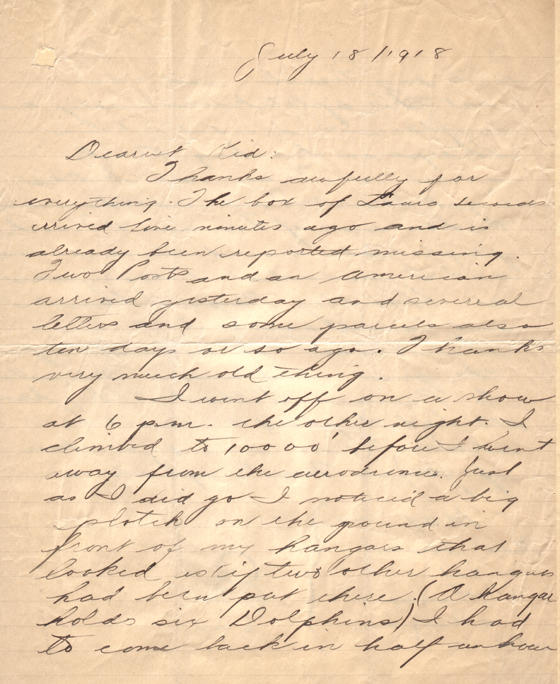 July 18/1918
Dearest Kid:
Thanks awfully for
everything. The box of Laura Secords
arrived five minutes ago and is
already been reported missing.
Two Posts and an American
arrived yesterday and several
letters and some parcels also
ten days or so ago. Thanks
very much old thing.
I went off on a show
at 6 p.m. the other night. I
climbed to 10000' before I went
away from the aerodrome. Just
as I did go I noticed a big
splotch on the ground in
front of my hangars that
looked as if two other hangars
had been put there. (A Hangar
holds six Dolphins) I had
to come back in half an hour